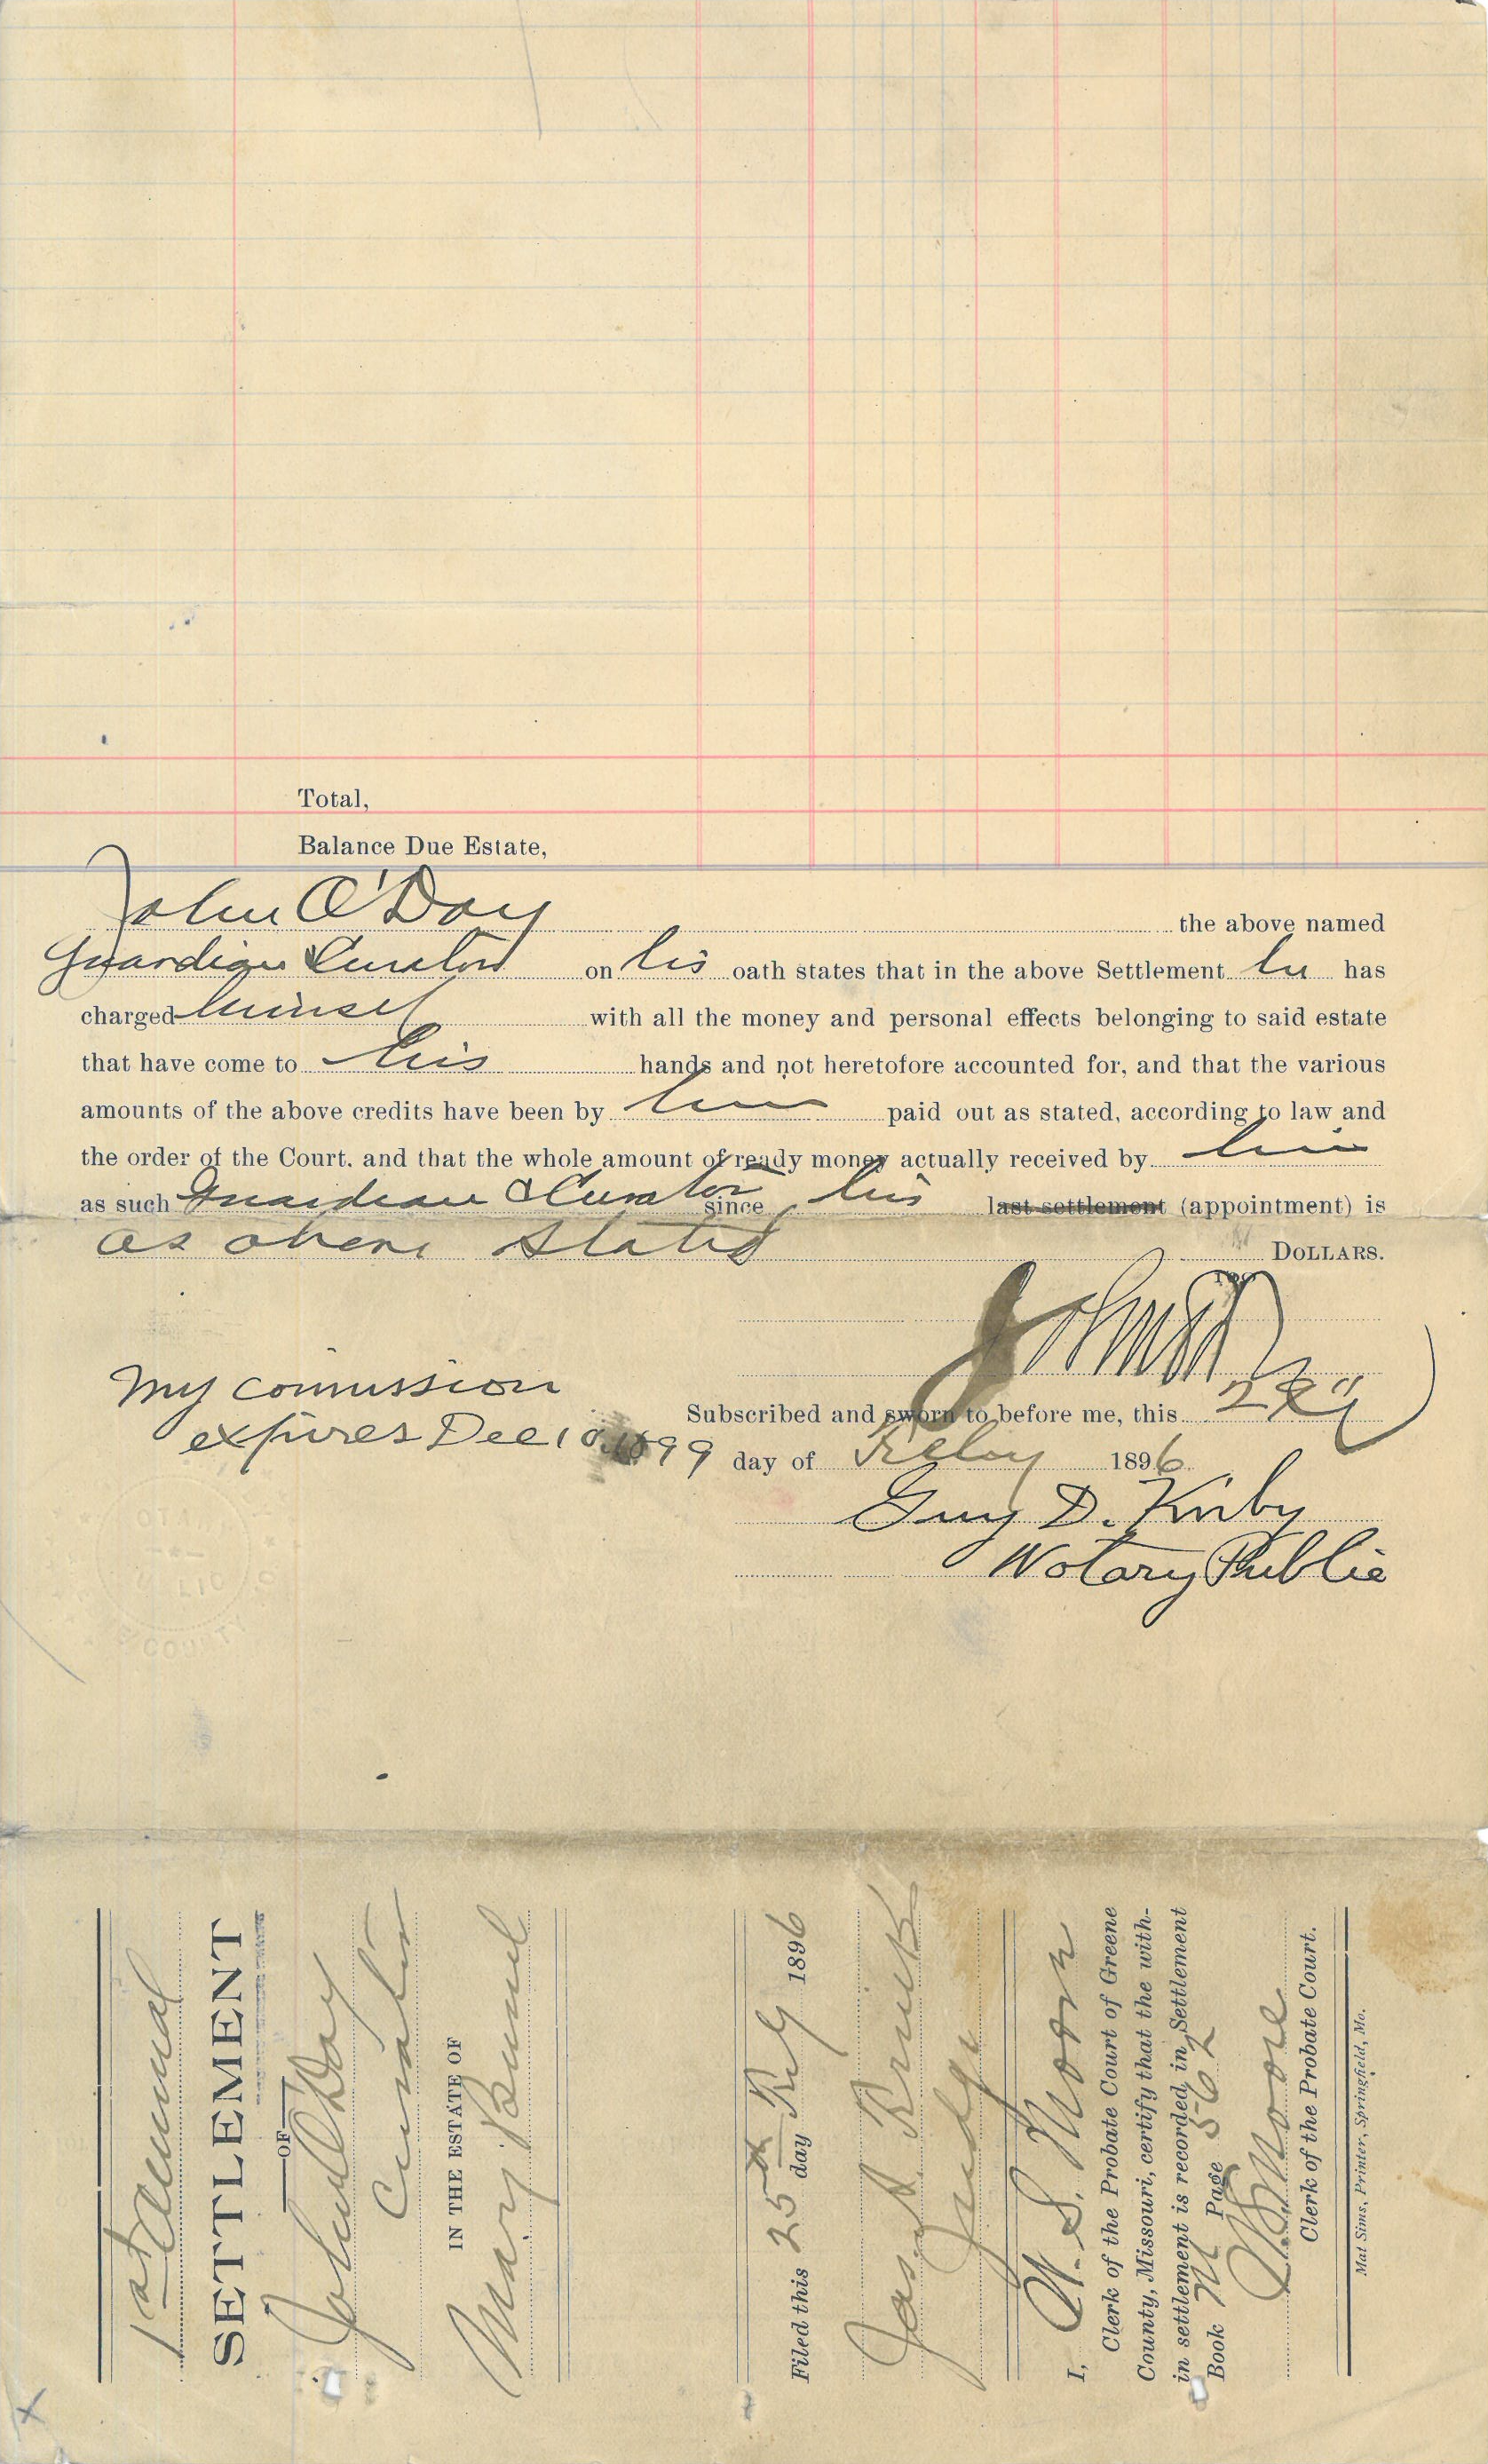 Total,
Balance Due Estate,
John O'Day the above named
Guardian & Curator on his oath states that in the above Settlement he has
charged himself with all the money and personal effects belonging to said estate
that have come to his hands and not heretofore accounted for, and that the various
amounts of the above credits have been by him paid out as stated, according to law and
the order of the Court, and that the whole amount of ready money actually received by him
as such Guardian & Curator since his last settlement (appointment) is
as above stated DOLLARS.
John O'Day
My comission
expires Dec 10 1899
Subscribed and sworn to before me, this
day of Feby 1896
Guy D. Kirby
Notary Public
COUNTY
1st Annual
SETTLEMENT
OF
John O'Day
Curator
IN THE ESTATE OF
Mary
Filed this 25th day Feby 1896
Jas. J.
Judge
I, W. S. Moore
Clerk of the Probate Court of Greene
County, Missouri, certify that the with-
in settlement is recorded in Settlement
Book M Page 562
W. S. Moore
Clerk of the Probate Court.
Mat Sims, Printer, Springfield, Mo.